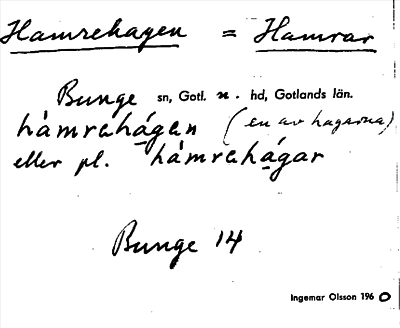 Hamrehagen = Hamrar
Bunge sn, Gotl. n. hd, Gotlands län.
hàmrehá̱gen (en av hagarna)
eller pl. hàmrehá̱gar
Bunge 14
Ingemar Olsson 1960